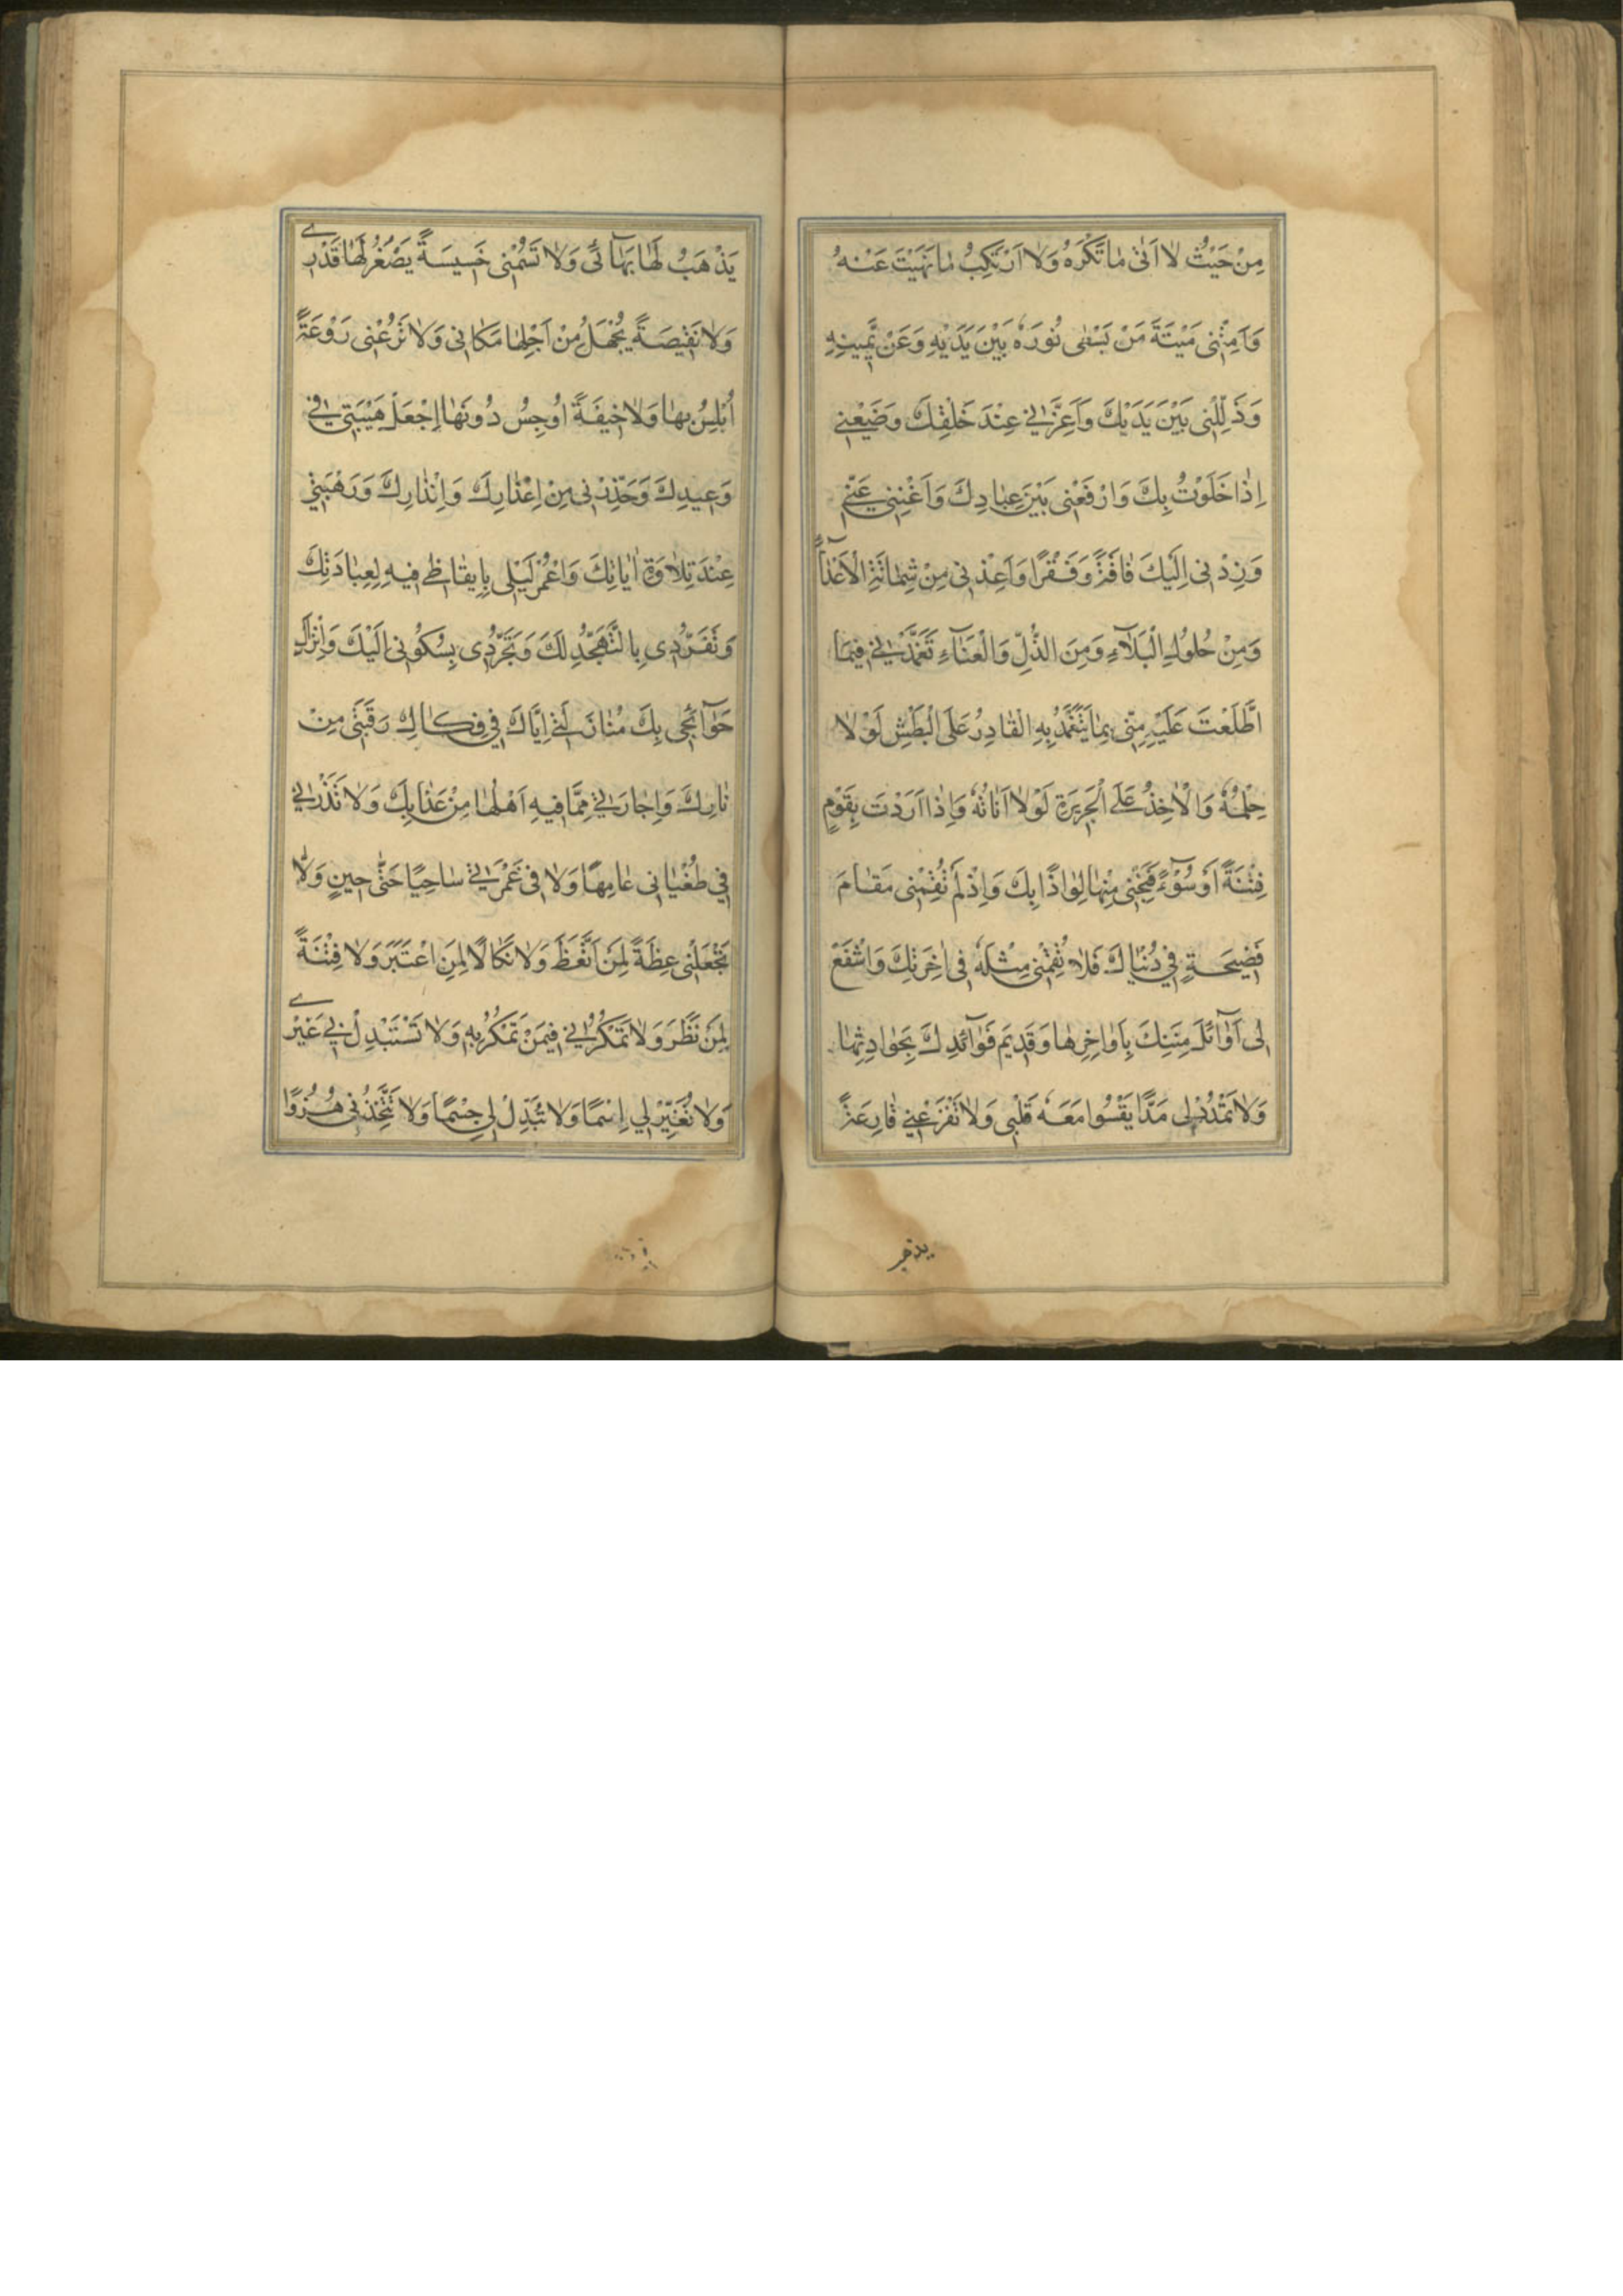 مِنْ حَيْثُ لا اَتى ما تَكْرَهُ وَلا اَرْتَكِبُ ما نَهَيْتَ عَنْهُ
وَاَمِتْنى مَيْتَةَ مَنْ يَسْعى نُورُهُ بَيْنَ يَدَيْهِ وَعَنْ يَمينِهِ
وَذَلِّلْنى بَيْنَ يَدَيْكَ وَاَعِزَّنى عِنْدَ خَلْقِكَ وَضَعْنى
اِذا خَلَوْتُ بِكَ وَارْفَعْنى بَيْنَ عِبادِكَ وَاَغْنِنى عَنّى
وَزِدْنى اِلَيْكَ فاقَةً وَفَقْرًا وَاَعِذْنى مِنْ شِماتَةِ الْاَعْدآءِ
وَمِنْ حُلُولِ الْبَلآءِ وَمِنَ الذُّلِّ وَالْعَنآءِ تَغَمَّدْنى فيمَا
اطَّلَعْتَ عَلَيْهِ مِنّى بِما يَتَغَمَّدُ بِهِ الْقادِرُ عَلَى الْبَطْشِ لَوْلا
حِلْمُهُ وَالْاخِذُ عَلَى الْجَريرَةِ لَوْلا اَناتُهُ وَاِذا اَرَدْتَ بِقَوْمٍ
فِتْنَةً اَوْ سُوْءً فَنَجِّنى مِنْها لِواذًا بِكَ وَاِذْ لَمْ تُقِمْنى مَقامَ
فَضيحَةٍ فى دُنْياكَ فَلا تُقِمْنى مِثْلَهُ فى اخِرَتِكَ وَاشْفَعْ
لى اَوآئِلَ مِنَنِكَ بِاَواخِرِها وَقَديمَ فَوآئِدِكَ بِحَوادِثِها
وَلا تَمْدُدْ لى مَدًّا يَقْسُوا مَعَهُ قَلْبى وَلا تَقْرَعْنى قارِعَةً
يذهب
يَذْهَبُ لَها بَهآئى وَلا تَسُمْنى خَسيسَةً يَصْغُرُ لَها قَدْرى
وَلا نَقيصَةً يُجْهَلُ مِنْ اَجْلِها مَكانى وَلا تَرُعْنى رَوْعَةً
اُبْلِسُ بِها وَلا خيفَةً اُوجِسُ دُونَها اِجْعَلْ هَيْبَتى فى
وَعيدِكَ وَحَذَرى مِنْ اِعْذارِكَ وَاِنْذارِكَ وَرَهْبَتى
عِنْدَ تِلاوَةِ اياتِكَ وَاعْمُرْ لَيْلى بِايقاظى فيهِ لِعِبادَتِكَ
وَتَفَرُّدى بِالتَّهَجُّدِ لَكَ وَتَجَرُّدى بِسُكُونى اِلَيْكَ وَاِنْزالِ
حَوآئِجى بِكَ مُنازَلَتى اِيّاكَ فى فِكاكِ رَقَبَتى مِنْ
نارِكَ وَاِجارَتى مِمّا فيهِ اَهْلُها مِنْ عَذابِكَ وَلا تَذَرْنى
فى طُغْيانى عامِهًا وَلا فى غَمْرَتى ساهِيًا حَتّى حينٍ وَلا
تَجْعَلْنى عِظَةً لِمَنِ اتَّعَظَ وَلا نَكالًا لِمَنِ اعْتَبَرَ وَلا فِتْنَةً
لِمَنْ نَظَرَ وَلا تَمْكُرْ بى فيمَنْ تَمْكُرُ بِهِ وَلا تَسْتَبْدِلْ بى غَيْرى
وَلا تُغَيِّرْ لى اِسْمًا وَلا تُبَدِّلْ لى جِسْمًا وَلا تَتَّخِذْنى هُزُوًا